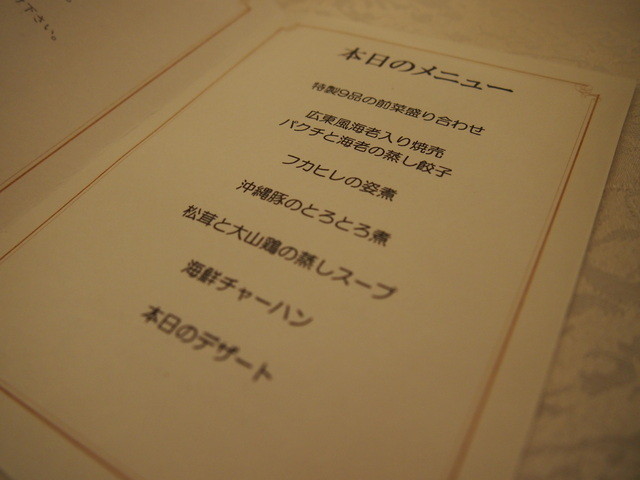 下さい。
本日のメニュー
特製9品の前菜盛り合わせ
広東風海老入り焼売
パクチと海老の蒸し餃子
フカヒレの姿煮
沖縄豚のとろとろ煮
松茸と大山鶏の蒸しスープ
海鮮チャーハン
本日のデザート